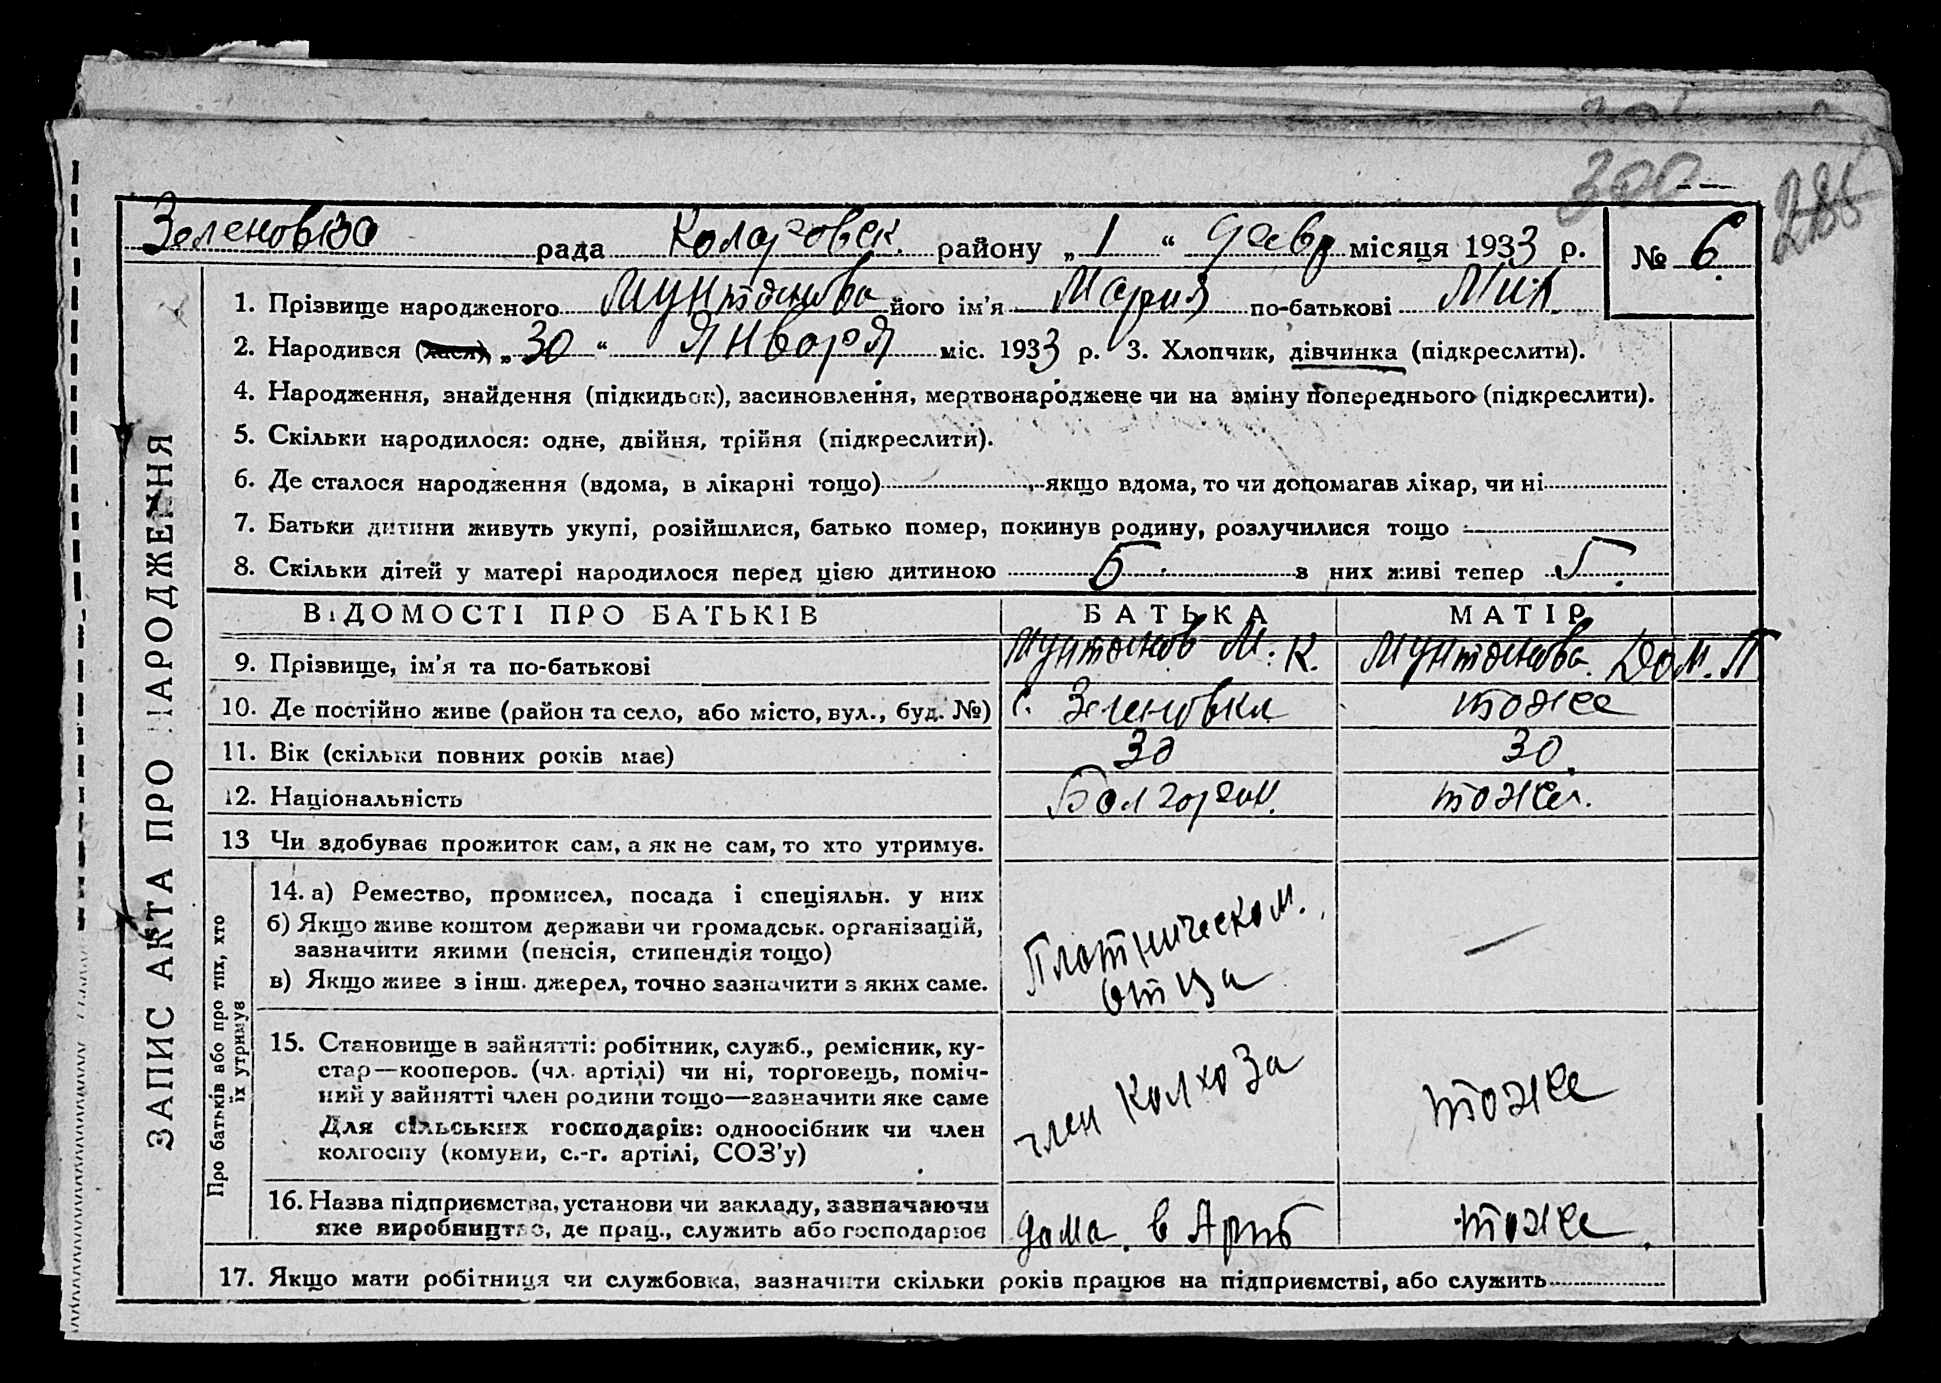 300
286
Зеленовка рада Коларовск. району „ 1 “ февр місяця 1933 р. № 6
1. Прізвище народженого Мунтянова його ім'я Мария по-батькові Мих.
2. Народився „ 30 “ Января міс. 1933 р. 3. Хлопчик, дівчинка (підкреслити).
4. Народження, знайдення (підкидьок), засиновлення, мертвонароджене чи на зміну попереднього (підкреслити).
5. Скільки народилося: одне, двійня, трійня (підкреслити).
6. Де сталося народження (вдома, в лікарні тощо) якщо вдома, то чи допомагав лікар, чи ні
7. Батьки дитини живуть укупі, розійшлися, батько помер, покинув родину, розлучилися тощо
8. Скільки дітей у матері народилося перед цією дитиною 5 з них живі тепер 5.
ВІДОМОСТІ ПРО БАТЬКІВ БАТЬКА МАТІР
9. Прізвище, ім'я та по-батькові Мунтянов М. К. Мунтянова Дом. П
10. Де постійно живе (район та село, або місто, вул., буд. №) с. Зеленовка тоже
11. Вік (скільки повних років має) 30 30.
12. Національність Болгарин. тоже.
13 Чи здобуває прожиток сам, а як не сам, то хто утримує.
14. а) Ремество, промисел, посада і спеціяльн. у них
б) Якщо живе коштом держави чи громадськ. організацій,
зазначити якими (пенсія, стипендія тощо)
в) Якщо живе з інш. джерел, точно зазначити з яких саме.
Плотническом.
отца
—
15. Становище в зайнятті: робітник, служб., ремісник, ку-
стар—кооперов. (чл. артілі) чи ні, торговець, поміч-
ний у зайнятті член родини тощо—зазначити яке саме
Для сільських господарів: одноосібник чи член
колгоспу (комуни, с.-г. артілі, СОЗ'у)
член Колхоза тоже
16. Назва підприємства, установи чи закладу, зазначаючи
яке виробництво, де прац., служить або господарює
дома. в Арт тоже
17. Якщо мати робітниця чи службовка, зазначити скільки років працює на підприємстві, або служить
ЗАПИС АКТА ПРО НАРОДЖЕННЯ
Про батьків або про тих, хто
їх утримує